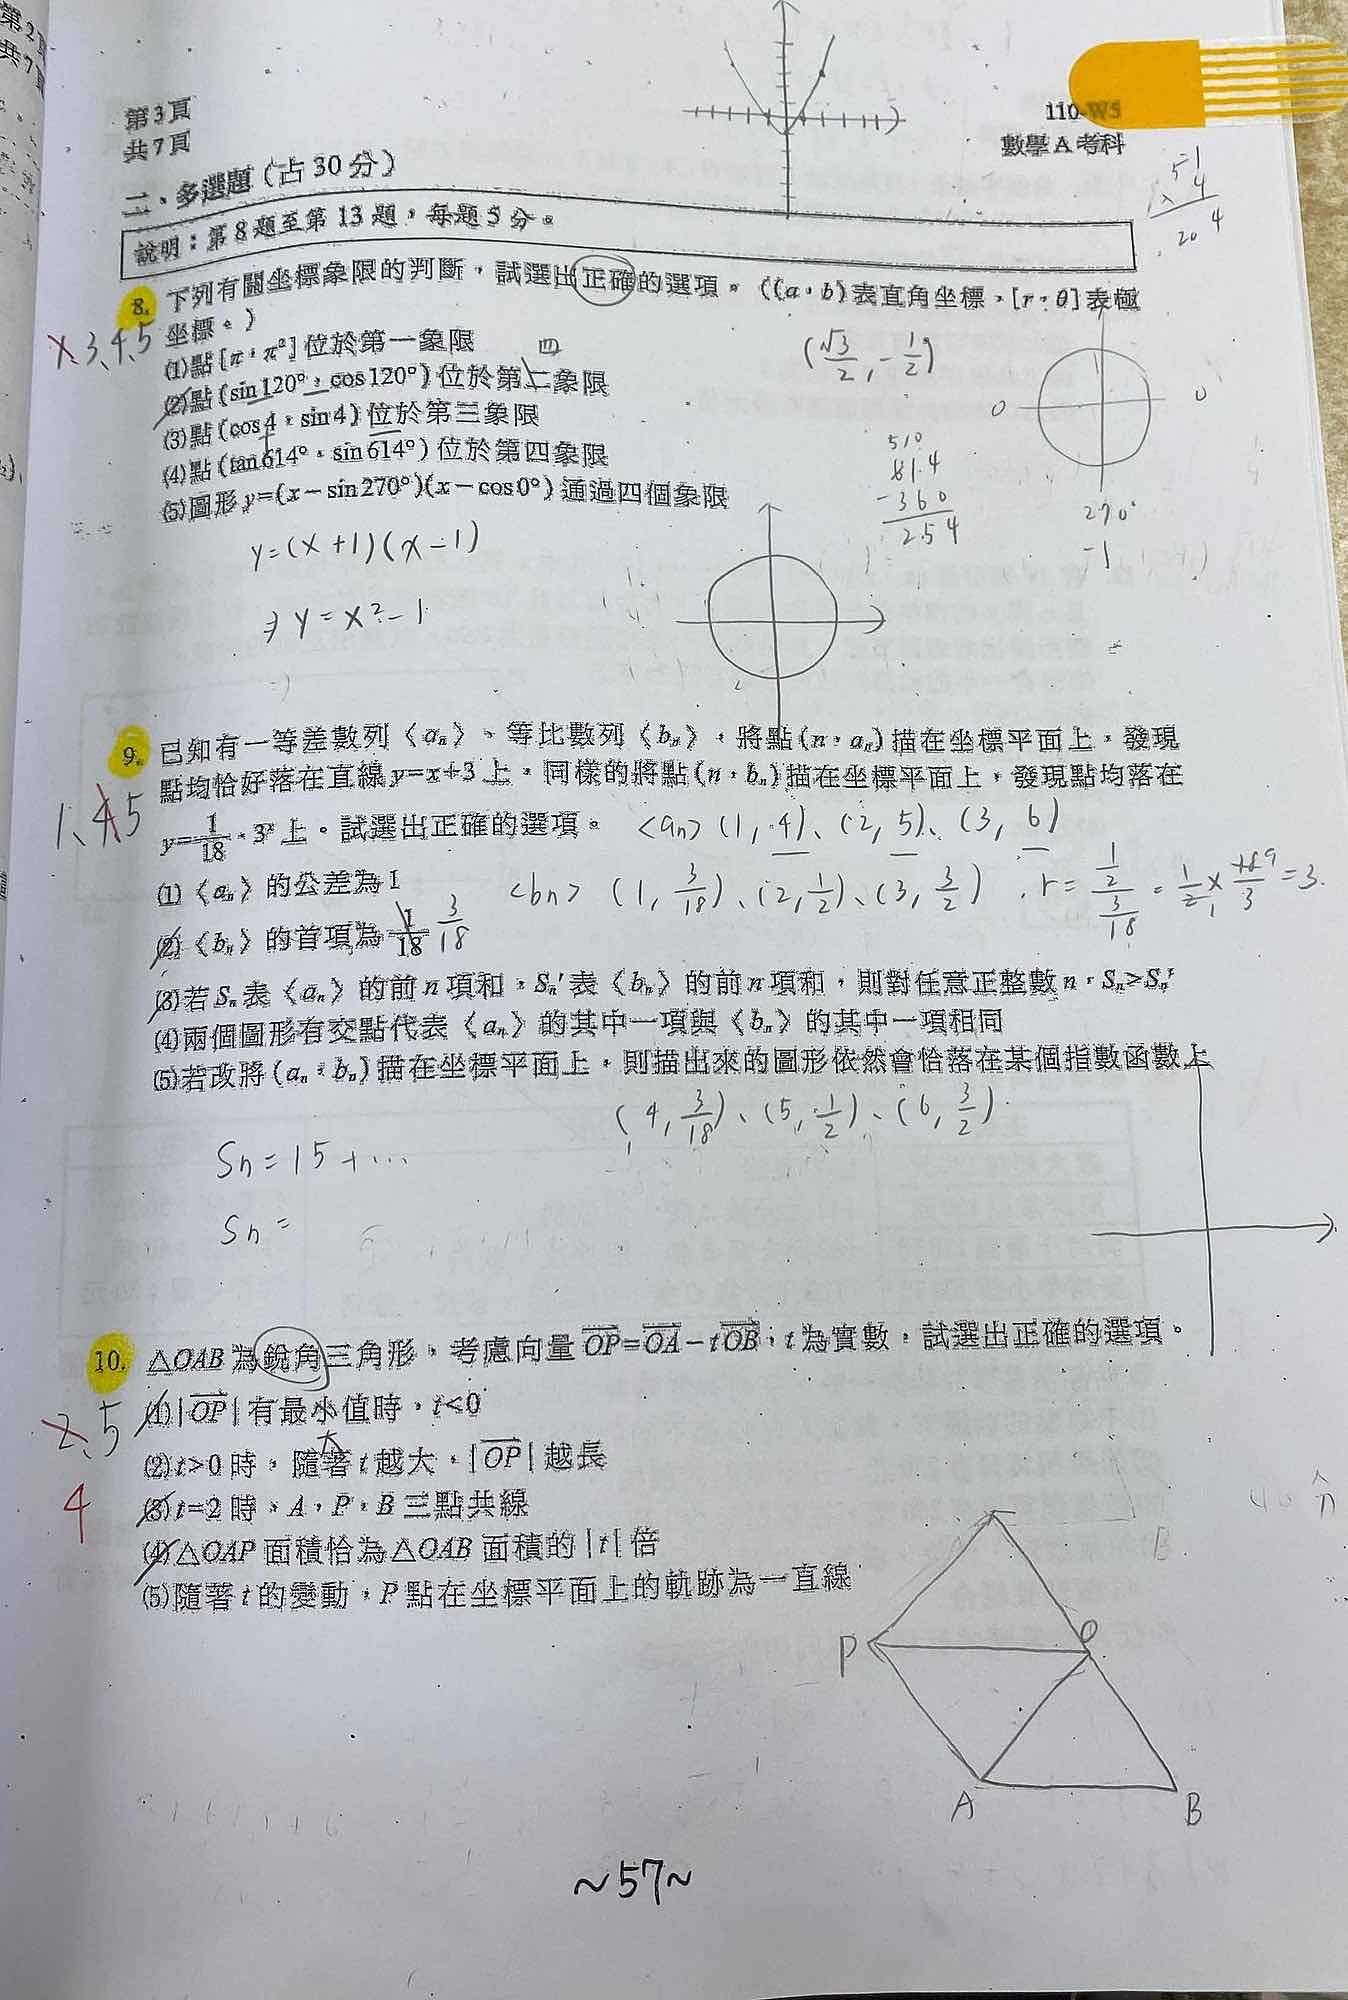 第2頁
共7頁
第3頁
共7頁
110-W5
數學A考科
51
4
204
二、多選題(占30分)
說明:第8題至第13題,每題5分。
8. 下列有關坐標象限的判斷,試選出正確的選項。((a,b)表直角坐標,[r,θ]表極
坐標。)
1、3、4、5
(1)點[π,π²]位於第一象限
四
(2)點(sin120°,cos120°)位於第二象限
(√3/2, -1/2)
(3)點(cos4,sin4)位於第三象限
(4)點(tan614°,sin614°)位於第四象限
(5)圖形y=(x-sin270°)(x-cos0°)通過四個象限
0
0
270°
-1
510
614
-360
254
y=(x+1)(x-1)
⇒ y=x²-1
9. 已知有一等差數列⟨aₙ⟩、等比數列⟨bₙ⟩,將點(n,aₙ)描在坐標平面上,發現
點均恰好落在直線y=x+3上,同樣的將點(n,bₙ)描在坐標平面上,發現點均落在
1、4、5
y=1/18·3ˣ上。試選出正確的選項。
<an> (1, 4)、(2, 5)、(3, 6)
(1)⟨aₙ⟩的公差為1
<bn> (1, 3/18)、(2, 1/2)、(3, 3/2)
, r= (1/2)/(3/18) = 1/2 × 18/3 = 3.
9
1
(2)⟨bₙ⟩的首項為1/18
3/18
(3)若Sₙ表⟨aₙ⟩的前n項和,Sₙ′表⟨bₙ⟩的前n項和,則對任意正整數n,Sₙ>Sₙ′
(4)兩個圖形有交點代表⟨aₙ⟩的其中一項與⟨bₙ⟩的其中一項相同
(5)若改將(aₙ,bₙ)描在坐標平面上,則描出來的圖形依然會恰落在某個指數函數上
(4, 3/18)、(5, 1/2)、(6, 3/2)
Sn=15+…
Sn=
10. △OAB為銳角三角形,考慮向量OP=OA-tOB,t為實數,試選出正確的選項。
2、5
4
(1)|OP|有最小值時,t<0
大
(2)t>0時,隨著t越大,|OP|越長
(3)t=2時,A,P,B三點共線
(4)△OAP面積恰為△OAB面積的|t|倍
(5)隨著t的變動,P點在坐標平面上的軌跡為一直線
P
O
A
B
~57~